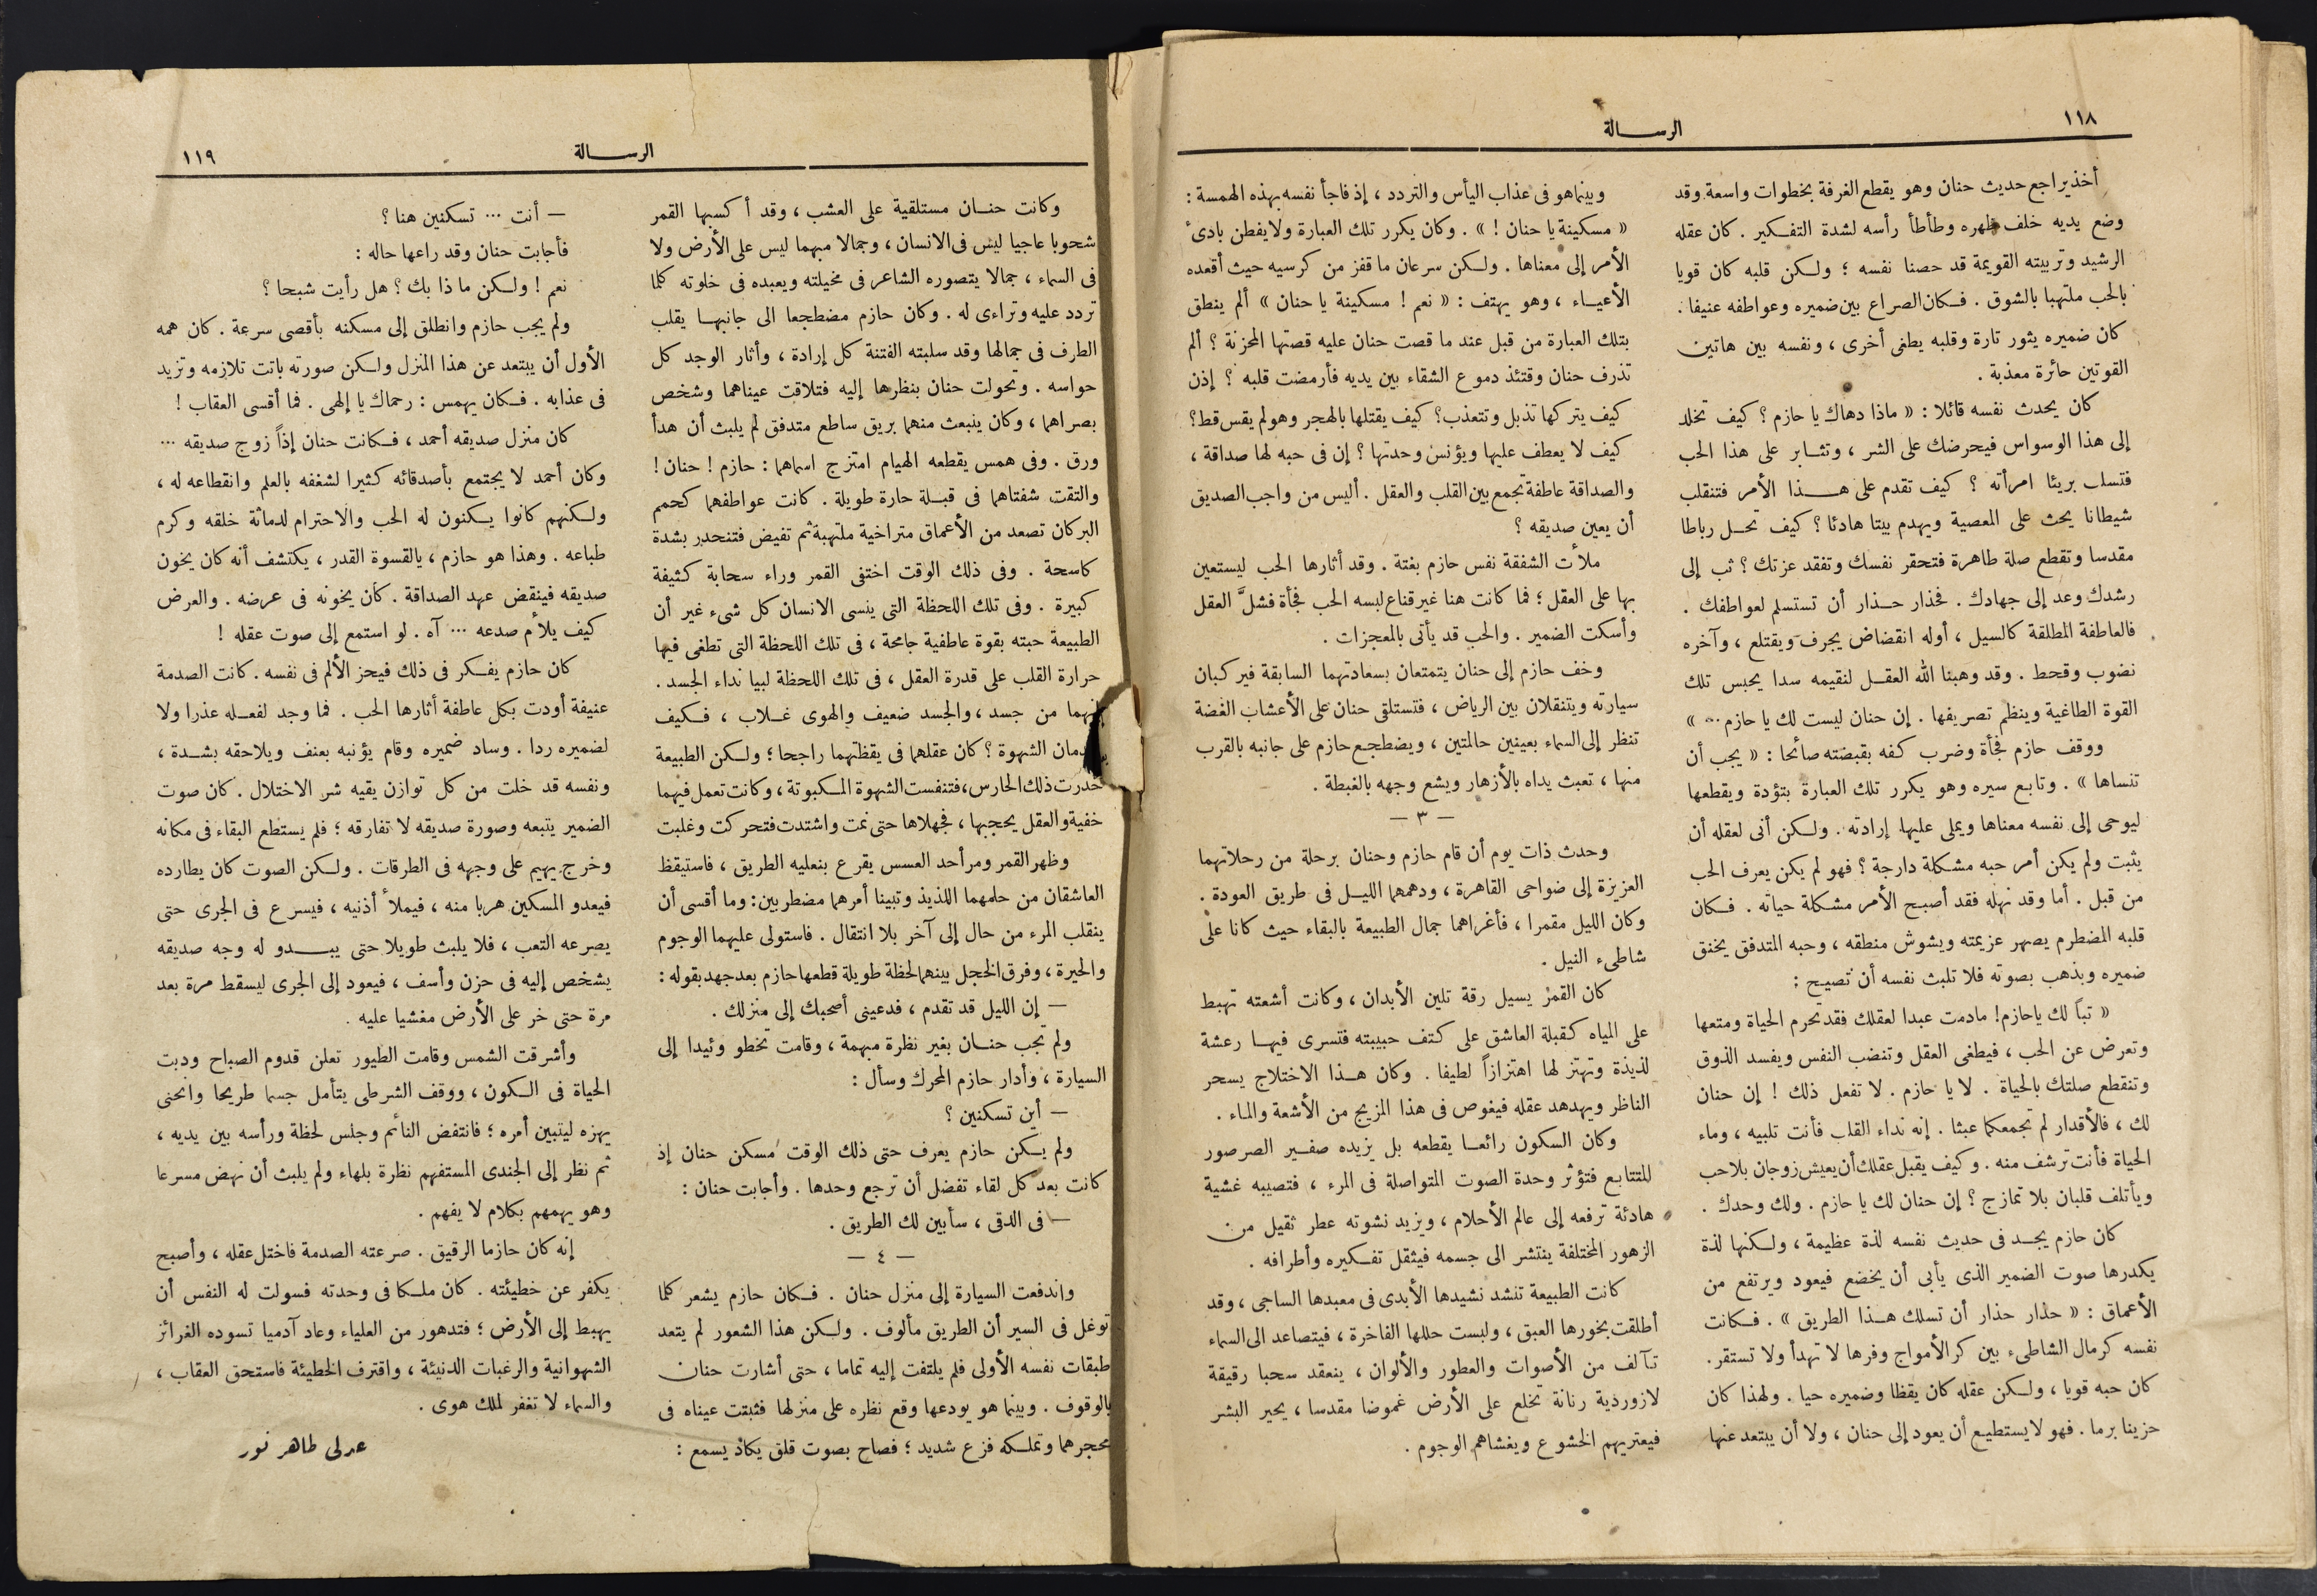 ١١٨
الرسالة
أخذ يراجع حديث حنان وهو يقطع الغرفة بخطوات واسعة وقد
وضع يديه خلف ظهره وطأطأ رأسه لشدة التفكير . كان عقله
الرشيد وتربيته القويمة قد حصنا نفسه ؛ ولكن قلبه كان قويا
بالحب ملتهبا بالشوق . فكان الصراع بين ضميره وعواطفه عنيفا .
كان ضميره يثور تارة وقلبه يطغى أخرى ، ونفسه بين هاتين
القوتين حائرة معذبة .
كان يحدث نفسه قائلا : « ماذا دهاك يا حازم ؟ كيف تخلد
إلى هذا الوسواس فيحرضك على الشر ، وتثابر على هذا الحب
فتسلب بريئا امرأته ؟ كيف تقدم على هذا الأمر فتنقلب
شيطانا يحث على المعصية ويهدم بيتا هادئا ؟ كيف تحل رباطا
مقدسا وتقطع صلة طاهرة فتحقر نفسك وتفقد عزتك ؟ ثب إلى
رشدك وعد إلى جهادك . فحذار حذار أن تستسلم لعواطفك .
فالعاطفة المطلقة كالسيل ، أوله انقضاض يجرف ويقتلع ، وآخره
نضوب وقحط . وقد وهبنا الله العقل لنقيمه سدا يحبس تلك
القوة الطاغية وينظم تصريفها . إن حنان ليست لك يا حازم ... »
ووقف حازم فجأة وضرب كفه بقبضته صائحا : « يجب أن
تنساها » . وتابع سيره وهو يكرر تلك العبارة بتؤدة ويقطعها
ليوحى إلى نفسه معناها ويملى عليها إرادته . ولكن أنى لعقله أن
يثبت ولم يكن أمر حبه مشكلة دارجة ؟ فهو لم يكن يعرف الحب
من قبل . أما وقد نهله فقد أصبح الأمر مشكلة حياته . فكان
قلبه المضطرم يصهر عزيمته ويشوش منطقه ، وحبه المتدفق يخنق
ضميره ويذهب بصوته فلا تلبث نفسه أن تصيح :
« تباً لك يا حازم ! مادمت عبدا لعقلك فقد تحرم الحياة ومتعها
وتعرض عن الحب ، فيطغى العقل وتنضب النفس ويفسد الذوق
وتنقطع صلتك بالحياة . لا يا حازم . لا تفعل ذلك ! إن حنان
لك ، فالأقدار لم تجمعكما عبثا . إنه نداء القلب فأنت تلبيه ، وماء
الحياة فأنت ترشف منه . وكيف يقبل عقلك أن يعيش زوجان بلا حب
ويأتلف قلبان بلا تمازج ؟ إن حنان لك يا حازم . ولك وحدك .
كان حازم يجد فى حديث نفسه لذة عظيمة ، ولكنها لذة
يكدرها صوت الضمير الذى يأبى أن يخضع فيعود ويرتفع من
الأعماق : « حذار حذار أن تسلك هذا الطريق » . فكانت
نفسه كرمال الشاطىء بين كر الأمواج وفرها لا تهدأ ولا تستقر .
كان حبه قويا ، ولكن عقله كان يقظا وضميره حيا . ولهذا كان
حزينا برما . فهو لا يستطيع أن يعود إلى حنان ، ولا أن يبتعد عنها
وبينما هو فى عذاب اليأس والتردد ، إذ فاجأ نفسه بهذه الهمسة :
« مسكينة يا حنان ! » . وكان يكرر تلك العبارة ولا يفطن بادئ
الأمر إلى معناها . ولكن سرعان ما قفز من كرسيه حيث أقعده
الأعياء ، وهو يهتف : « نعم ! مسكينة يا حنان » ألم ينطق
بتلك العبارة من قبل عند ما قصت حنان عليه قصتها المحزنة ؟ ألم
تذرف حنان وقتئذ دموع الشقاء بين يديه فأرمضت قلبه ؟ إذن
كيف يتركها تذبل وتتعذب ؟ كيف يقتلها بالهجر وهو لم يقس قط ؟
كيف لا يعطف عليها ويؤنس وحدتها ؟ إن فى حبه لها صداقة ،
والصداقة عاطفة تجمع بين القلب والعقل . أليس من واجب الصديق
أن يعين صديقه ؟
ملأت الشفقة نفس حازم بغتة . وقد أثارها الحب ليستعين
بها على العقل ؛ فما كانت هنا غير قناع لبسه الحب فجأة فشلَّ العقل
وأسكت الضمير . والحب قد يأتى بالمعجزات .
وخف حازم إلى حنان يتمتعان بسعادتهما السابقة فيركبان
سيارته ويتنقلان بين الرياض ، فتستلقى حنان على الأعشاب الغضة
تنظر إلى السماء بعينين حالمتين ، ويضطجع حازم على جانبه بالقرب
منها ، تعبث يداه بالأزهار ويشع وجهه بالغبطة .
— ٣ —
وحدث ذات يوم أن قام حازم وحنان برحلة من رحلاتهما
العزيزة إلى ضواحى القاهرة ، ودهمهما الليل فى طريق العودة .
وكان الليل مقمرا ، فأغراهما جمال الطبيعة بالبقاء حيث كانا على
شاطىء النيل .
كان القمر يسيل رقة تلين الأبدان ، وكانت أشعته تهبط
على المياه كقبلة العاشق على كتف حبيبته فتسرى فيها رعشة
لذيذة وتهتز لها اهتزازاً لطيفا . وكان هذا الاختلاج يسحر
الناظر ويهدهد عقله فيغوص فى هذا المزيج من الأشعة والماء .
وكان السكون رائعا يقطعه بل يزيده صفير الصرصور
المتتابع فتؤثر وحدة الصوت المتواصلة فى المرء ، فتصيبه غشية
هادئة ترفعه إلى عالم الأحلام ، ويزيد نشوته عطر ثقيل من
الزهور المختلفة ينتشر الى جسمه فيثقل تفكيره وأطرافه .
كانت الطبيعة تنشد نشيدها الأبدى فى معبدها الساجى ، وقد
أطلقت بخورها العبق ، ولبست حللها الفاخرة ، فيتصاعد الى السماء
تآلف من الأصوات والعطور والألوان ، ينعقد سحبا رقيقة
لازوردية رنانة تخلع على الأرض غموضا مقدسا ، يحير البشر
فيعتريهم الخشوع ويغشاهم الوجوم .
الرسالة
١١٩
وكانت حنان مستلقية على العشب ، وقد أكسبها القمر
شحوبا عاجيا ليس فى الانسان ، وجمالا مبهما ليس على الأرض ولا
فى السماء ، جمالا يتصوره الشاعر فى مخيلته ويعبده فى خلوته كلما
تردد عليه وتراءى له . وكان حازم مضطجعا الى جانبها يقلب
الطرف فى جمالها وقد سلبته الفتنة كل إرادة ، وأثار الوجد كل
حواسه . وتحولت حنان بنظرها إليه فتلاقت عيناهما وشخص
بصراهما ، وكان ينبعث منهما بريق ساطع متدفق لم يلبث أن هدأ
ورق . وفى همس يقطعه الهيام امتزج اسماهما : حازم ! حنان !
والتقت شفتاهما فى قبلة حارة طويلة . كانت عواطفهما كحمم
البركان تصعد من الأعماق متراخية ملتهبة ثم تفيض فتنحدر بشدة
كاسحة . وفى ذلك الوقت اختفى القمر وراء سحابة كثيفة
كبيرة . وفى تلك اللحظة التى ينسى الانسان كل شىء غير أن
الطبيعة حبته بقوة عاطفية جامحة ، فى تلك اللحظة التى تطغى فيها
حرارة القلب على قدرة العقل ، فى تلك اللحظة لبيا نداء الجسد .
إنهما من جسد ، والجسد ضعيف والهوى غلاب ، فكيف
الشهوة ؟ كان عقلهما فى يقظتهما راجحا ؛ ولكن الطبيعة
خدرت ذلك الحارس ، فتنفست الشهوة المكبوتة ، وكانت تعمل فيهما
خفية والعقل يحجبها ، فجهلاها حتى نمت واشتدت فتحركت وغلبت
وظهر القمر ومر أحد العسس يقرع بنعليه الطريق ، فاستيقظ
العاشقان من حلمهما اللذيذ وتبينا أمرهما مضطربين : وما أقسى أن
ينقلب المرء من حال إلى آخر بلا انتقال . فاستولى عليهما الوجوم
والحيرة ، وفرق الخجل بينهما لحظة طويلة قطعها حازم بعد جهد بقوله :
— إن الليل قد تقدم ، فدعينى أصحبك إلى منزلك .
ولم تجب حنان بغير نظرة مبهمة ، وقامت تخطو وئيدا إلى
السيارة ، وأدار حازم المحرك وسأل :
— أين تسكنين ؟
ولم يكن حازم يعرف حتى ذلك الوقت مسكن حنان إذ
كانت بعد كل لقاء تفضل أن ترجع وحدها . وأجابت حنان :
— فى الدقى ، سأبين لك الطريق .
— ٤ —
واندفعت السيارة إلى منزل حنان . فكان حازم يشعر كلما
توغل فى السير أن الطريق مألوف . ولكن هذا الشعور لم يتعد
طبقات نفسه الأولى فلم يلتفت إليه تماما ، حتى أشارت حنان
بالوقوف . وبينما هو يودعها وقع نظره على منزلها فثبتت عيناه فى
محجرهما وتملكه فزع شديد ؛ فصاح بصوت قلق يكاد يسمع :
— أنت ... تسكنين هنا ؟
فأجابت حنان وقد راعها حاله :
نعم ! ولكن ما ذا بك ؟ هل رأيت شبحا ؟
ولم يجب حازم وانطلق إلى مسكنه بأقصى سرعة . كان همه
الأول أن يبتعد عن هذا المنزل ولكن صورته باتت تلازمه وتزيد
فى عذابه . فكان يهمس : رحماك يا إلهى . فما أقسى العقاب !
كان منزل صديقه أحمد ، فكانت حنان إذاً زوج صديقه ...
وكان أحمد لا يجتمع بأصدقائه كثيرا لشغفه بالعلم وانقطاعه له ،
ولكنهم كانوا يكنون له الحب والاحترام لدماثة خلقه وكرم
طباعه . وهذا هو حازم ، يالقسوة القدر ، يكتشف أنه كان يخون
صديقه فينقض عهد الصداقة . كان يخونه فى عرضه . والعرض
كيف يلأم صدعه ... آه . لو استمع إلى صوت عقله !
كان حازم يفكر فى ذلك فيحز الألم فى نفسه . كانت الصدمة
عنيفة أودت بكل عاطفة أثارها الحب . فما وجد لفعله عذرا ولا
لضميره ردا . وساد ضميره وقام يؤنبه بعنف ويلاحقه بشدة ،
ونفسه قد خلت من كل توازن يقيه شر الاختلال . كان صوت
الضمير يتبعه وصورة صديقه لا تفارقه ؛ فلم يستطع البقاء فى مكانه
وخرج يهيم على وجهه فى الطرقات . ولكن الصوت كان يطارده
فيعدو المسكين هربا منه ، فيملأ أذنيه ، فيسرع فى الجرى حتى
يصرعه التعب ، فلا يلبث طويلا حتى يبدو له وجه صديقه
يشخص إليه فى حزن وأسف ، فيعود إلى الجرى ليسقط مرة بعد
مرة حتى خر على الأرض مغشيا عليه .
وأشرقت الشمس وقامت الطيور تعلن قدوم الصباح ودبت
الحياة فى الكون ، ووقف الشرطى يتأمل جسما طريحا وانحنى
يهزه ليتبين أمره ؛ فانتفض النائم وجلس لحظة ورأسه بين يديه ،
ثم نظر إلى الجندى المستفهم نظرة بلهاء ولم يلبث أن نهض مسرعا
وهو يهمهم بكلام لا يفهم .
إنه كان حازما الرقيق . صرعته الصدمة فاختل عقله ، وأصبح
يكفر عن خطيئته . كان ملكا فى وحدته فسولت له النفس أن
يهبط إلى الأرض ؛ فتدهور من العلياء وعاد آدميا تسوده الغرائز
الشهوانية والرغبات الدنيئة ، واقترف الخطيئة فاستحق العقاب ،
والسماء لا تغفر لملك هوى .
عدلى طاهر نور